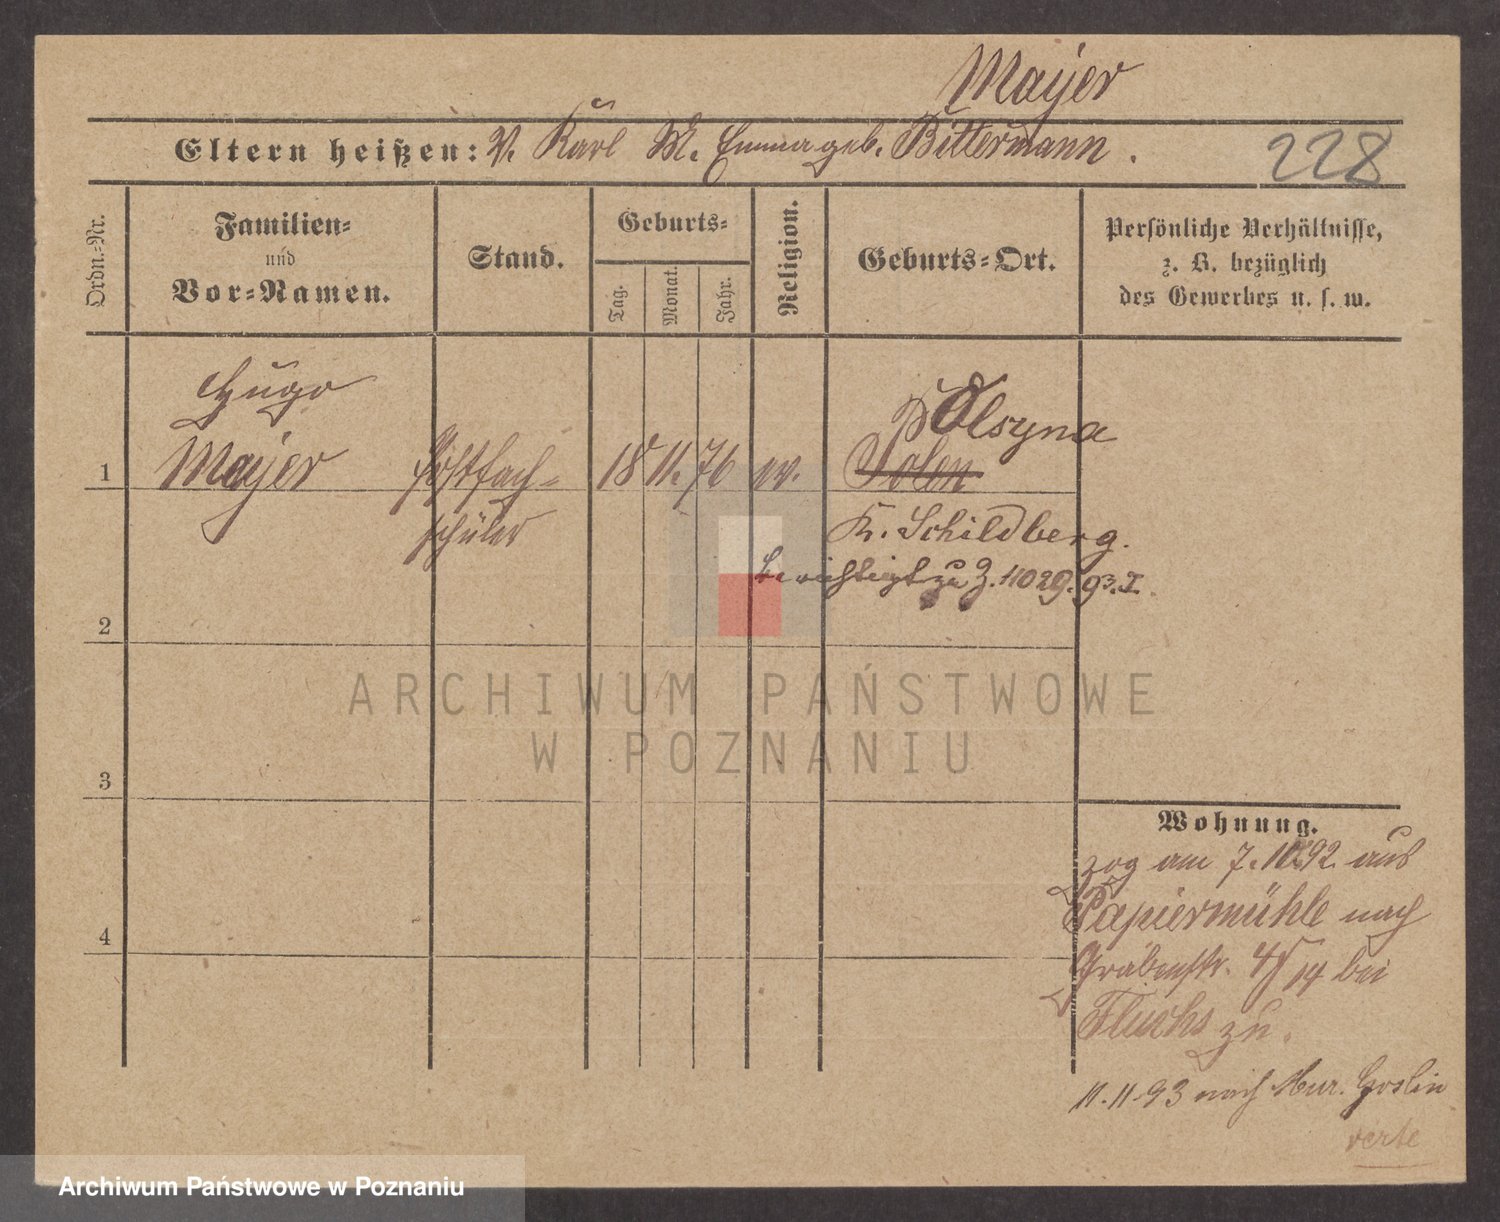 Mayer
Eltern heißen: V. Karl M. Emma geb. Bittermann.
228
Ordn.=Nr.
Familien=
und
Vor=Namen.
Stand.
Geburts=
Tag.
Monat.
Jahr.
Religion.
Geburts=Ort.
Persönliche Verhältnisse,
z. B. bezüglich
des Gewerbes u. s. w.
Hugo
1 Mayer Postfach= 18 11. 76 ev.
schüler
Olsyna
Polen
K. Schildberg.
berichtigt zu J. 11029. 93. I.
2
3
4
Wohnung.
zog am 7. 10. 92 aus
Papiermühle nach
Grabenstr. 14 bei
Fluchs zu.
11. 11. 93 nach Mur. Goslin
verte
ARCHIWUM PAŃSTWOWE
W POZNANIU
Archiwum Państwowe w Poznaniu